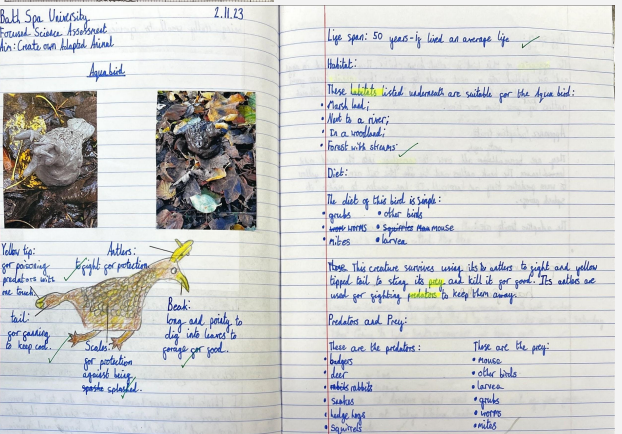 Bath Spa University
2.11.23
Focused Science Assessment
Aim: Create own Adapted Animal
Aquabird
Yellow tip:
for poisoning
predators with
one touch.
Antlers:
to fight for protection
tail:
for fanning
to keep cool.
Scales:
for protection
against being
splashed.
Beak:
long and pointy to
dig into leaves to
forage for food.
Life span: 50 years - if lived an average life
Habitat:
These habitats listed underneath are suitable for the Aqua bird:
• Marsh land;
• Next to a river;
• In a woodland;
• Forest with streams
Diet:
The diet of this bird is simple:
• grubs
• other birds
• worms
• mouse
• mites
• larvea
This creature survives using its antlers to fight and yellow
tipped tail to sting its prey and kill it for good. Its antlers are
used for fighting predators to keep them away.
Predators and Prey:
These are the predators:
These are the prey:
• badgers
• mouse
• deer
• other birds
• rabbits
• larvea
• snakes
• grubs
• hedge hogs
• worms
• squirrels
• mites